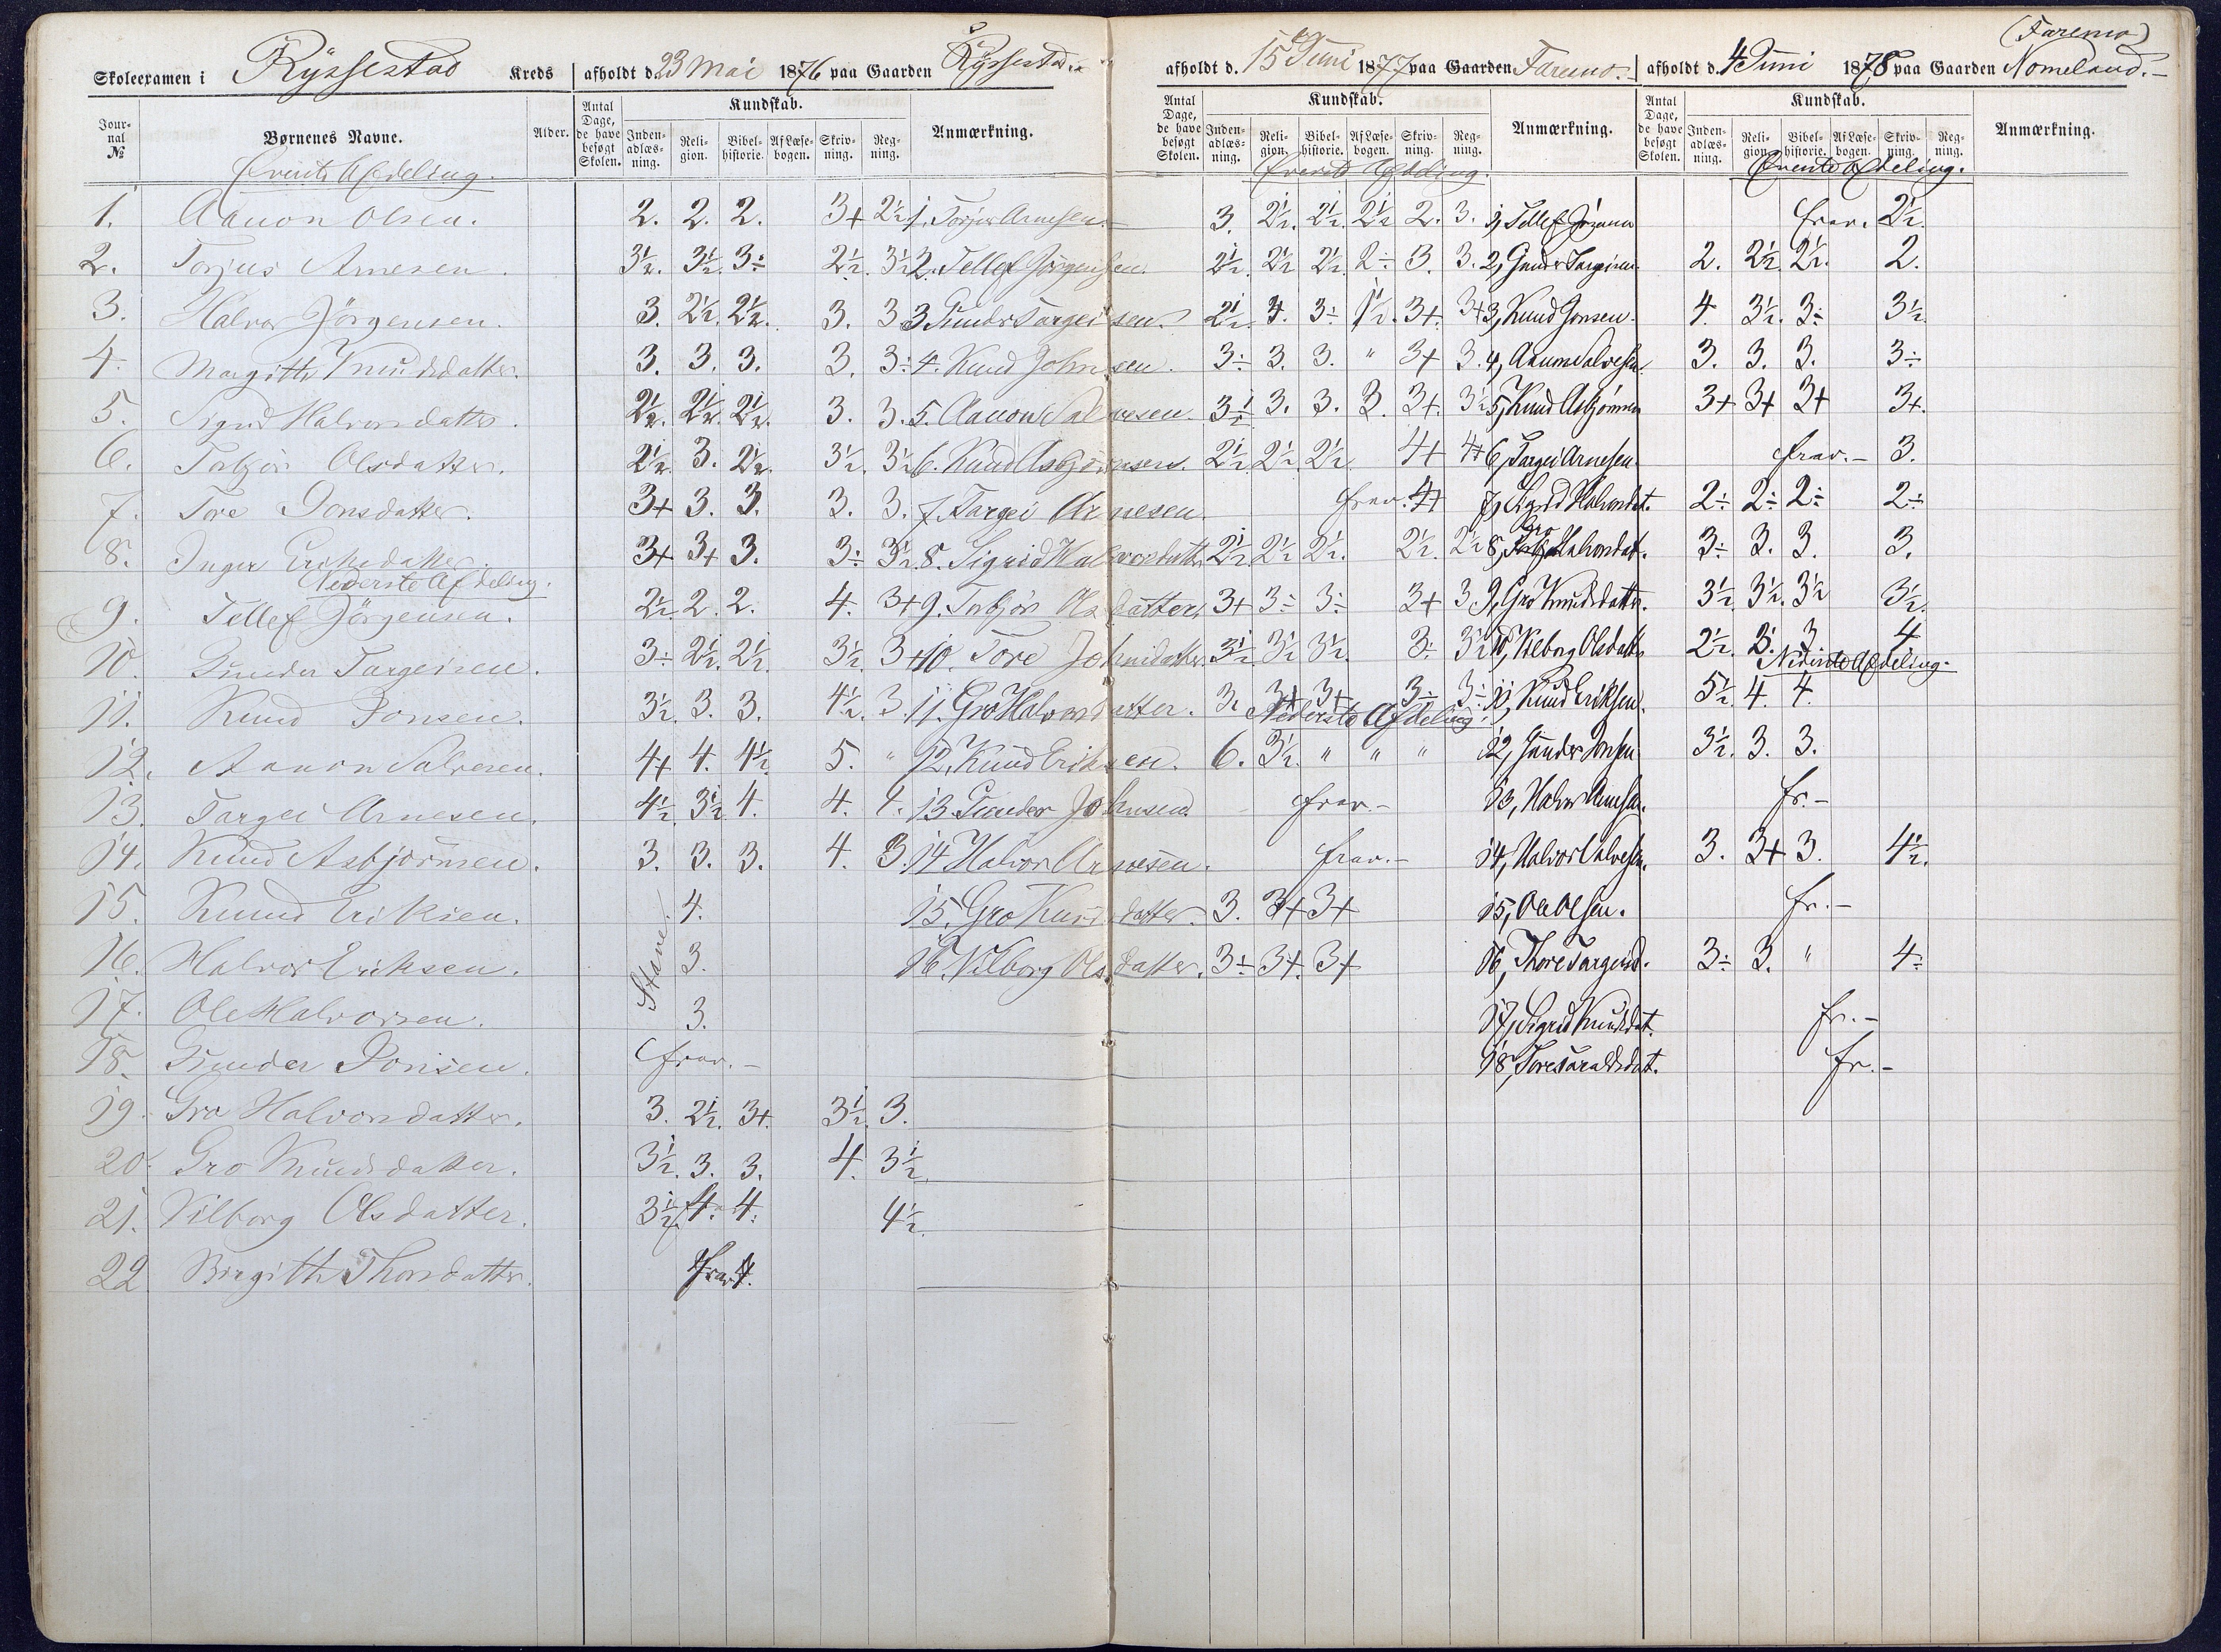 Skoleexamen i Ryssestad Kreds afholdt d. 23 Mai 1876 paa Gaarden Ryssestad.
Jour-nal № Børnenes Navne. Alder. Antal Dage, de have besøgt Skolen. Kundskab. Inden-adlæs-ning. Reli-gion. Bibel-historie. Af Læse-bogen. Skriv-ning. Reg-ning. Anmærkning.
Øverste Afdeling.
1. Aanon Olsen. 2. 2. 2. 3+ 2½
2. Torjus Arnesen. 3½. 3½. 3÷ 2½. 3½
3. Halvor Jörgensen. 3. 2½. 2½. 3. 3
4. Margitte Knudsdatter. 3. 3. 3. 3. 3÷
5. Sigrid Halvorsdatter. 2½. 2½. 2½. 3. 3.
6. Torbjör Olsdatter. 2½. 3. 2½. 3½. 3½
7. Tore Jonsdatter. 3+ 3. 3. 3. 3.
8. Inger Eriksdatter. 3+ 3+ 3. 3÷ 3½.
Nederste Afdeling.
9. Tellef Jörgensen. 2½. 2. 2. 4. 3+
10. Gunder Targeisen. 3÷ 2½. 2½. 3½. 3+
11. Knud Jonsen. 3½. 3. 3. 4½. 3.
12. Aanon Salvesen. 4+ 4. 4½ 5. "
13. Targei Arnesen. 4½. 3½ 4. 4. 4.
14. Knud Asbjörnsen. 3. 3. 3. 4. 3.
15. Knud Eriksen. Stave. 4.
16. Halvor Eriksen. 3.
17. Ole Halvorsen. 3.
18. Gunder Jonsen. frav.-
19. Gro Halvorsdatter. 3. 2½. 3+. 3½. 3.
20. Gro Knudsdatter. 3½. 3. 3. 4. 3½
21. Vilborg Olsdatter. 3½. 4. 4. 4½.
22. Birgitte Thorsdatter. 4.
afholdt d. 15 Juni 1877 paa Gaarden Faremo.
Antal Dage, de have besøgt Skolen. Kundskab. Inden-adlæs-ning. Reli-gion. Bibel-historie. Af Læse-bogen. Skriv-ning. Reg-ning. Anmærkning.
Øverste Afdeling.
1. Torjus Arnesen. 3. 2½. 2½. 2½ 2. 3.
2. Tellef Jörgensen. 2½. 2½ 2½. 2÷ 3. 3.
3 Gunder Targeisen. 2½. 3. 3÷ 1½. 3+. 3+
4. Knud Johnsen. 3÷ 3. 3. " 3+ 3.
5. Aanon Salvesen. 3½ 3. 3. 3. 3+. 3½
6. Knud Asbjörnsen. 2½ 2½. 2½ 4+ 4+
7. Targei Arnesen. frav. 4+
8. Sigrid Halvorsdatter. 2½ 2½ 2½. 2½. 2½
9. Torbjör Olsdatter. 3+ 3÷ 3÷ 3+ 3
10. Tore Johnsdatter. 3½ 3½ 3½. 3÷ 3½
11. Gro Halvorsdatter. 3. 3+ 3+ 3÷ 3÷
Nederste Afdeling.
12. Knud Eriksen. 6. 3½. " " "
13. Gunder Johnsen. frav.-
14. Halvor Arnesen. frav.-
15. Gro Knudsdatter. 3. 3+ 3+
16. Vilborg Olsdatter. 3÷ 3+. 3+
(Faremo)
afholdt d. 4 Juni 1878 paa Gaarden Nomeland.-
Antal Dage, de have besøgt Skolen. Kundskab. Inden-adlæs-ning. Reli-gion. Bibel-historie. Af Læse-bogen. Skriv-ning. Reg-ning. Anmærkning.
Øverste Afdeling.
1, Tellef frav. 2½.
2, Gunder Targeisen. 2. 2½ 2½. 2.
3, Knud Jonsen. 4. 3½. 3÷ 3½
4, Aanon Salvesen. 3. 3. 3. 3÷
5, Knud Asbjörnsen 3+ 3+ 3+ 3+.
6, Targei Arnesen. frav.- 3.
7, Sigrid Halvorsdat. 2÷ 2÷ 2÷ 2÷
8, Gro Halvorsdat. 3÷ 3. 3. 3.
9, Gro Knudsdatter. 3½. 3½. 3½ 3½.
10, Vilborg Olsdatter 2½. 3. 3. 4
Nederste Afdeling.
11, Knud Eriksen. 5½. 4. 4.
12, Gunder Jonsen 3½. 3. 3.
13, Halvor Arnesen. fr.-
14, Halvor Salvesen. 3. 3+ 3. 4½.
15, Ole Olsen. fr.-
16, Thore Targeisd. 3÷ 3. " 4÷
17, Sigrid Knudsdat. fr.-
18, Tore Taraldsdat. fr.-